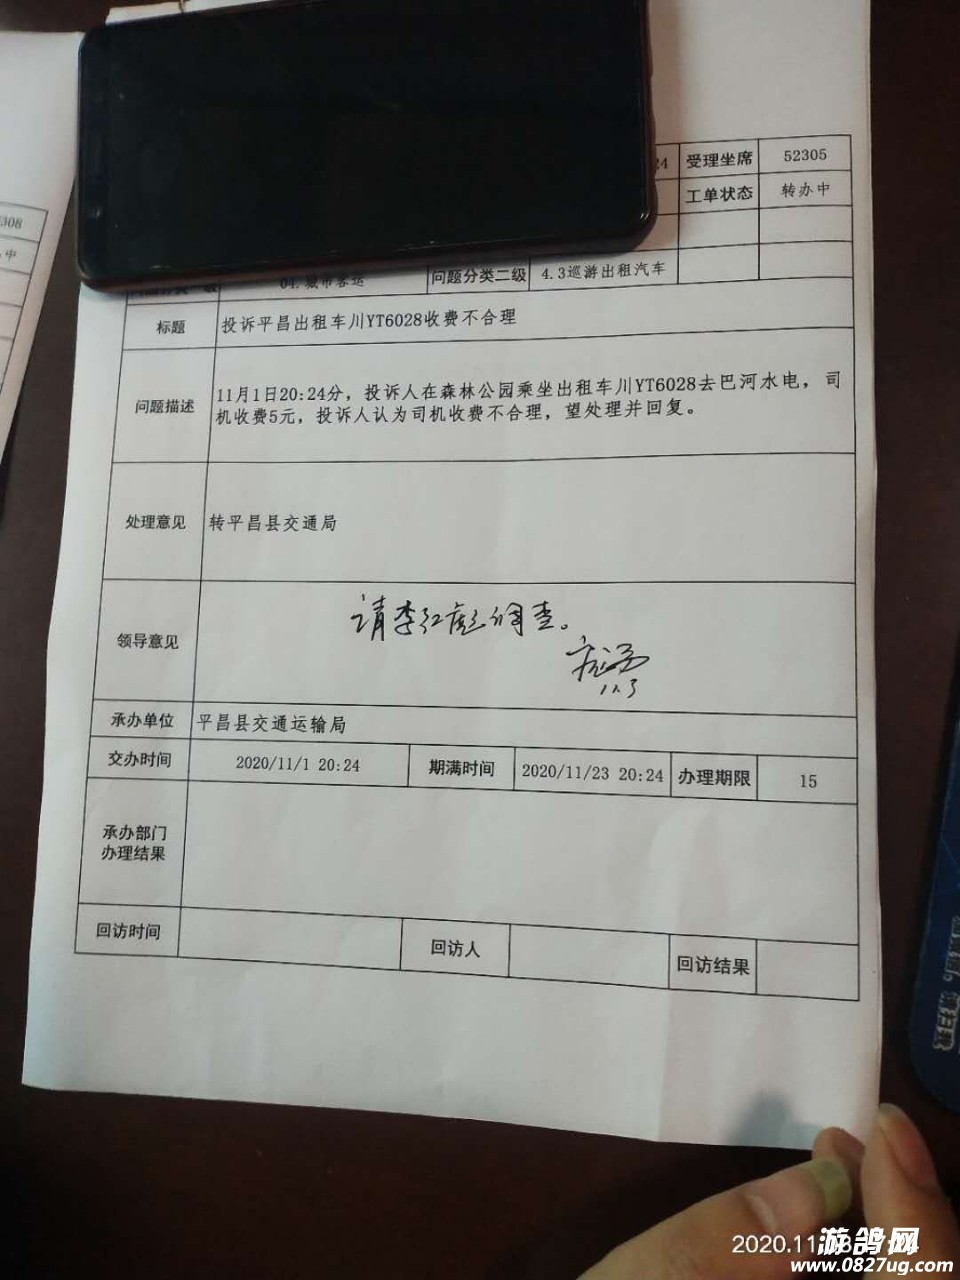 24 受理坐席 52305
工单状态 转办中
04.城市客运 问题分类二级 4.3巡游出租汽车
标题 投诉平昌出租车川YT6028收费不合理
问题描述 11月1日20:24分，投诉人在森林公园乘坐出租车川YT6028去巴河水电，司
机收费5元，投诉人认为司机收费不合理，望处理并回复。
处理意见 转平昌县交通局
领导意见 请李红彪调查。
11.3
承办单位 平昌县交通运输局
交办时间 2020/11/1 20:24 期满时间 2020/11/23 20:24 办理期限 15
承办部门
办理结果
回访时间 回访人 回访结果
308
中
2020.11
游鸽网
www.0827ug.com